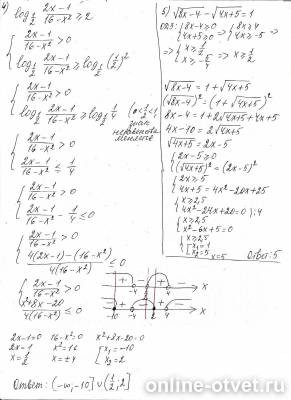 4) log_{1/2} (2x-1)/(16-x²) ≥ 2
{ (2x-1)/(16-x²) > 0
log_{1/2} (2x-1)/(16-x²) ≥ log_{1/2} (1/2)²
{ (2x-1)/(16-x²) > 0
log_{1/2} (2x-1)/(16-x²) ≥ log_{1/2} 1/4 (0<1/2<1
знак
неравенства
меняется
{ (2x-1)/(16-x²) > 0
(2x-1)/(16-x²) ≤ 1/4
{ (2x-1)/(16-x²) > 0
(2x-1)/(16-x²) - 1/4 ≤ 0
{ (2x-1)/(16-x²) > 0
(4(2x-1)-(16-x²))/(4(16-x²)) ≤ 0
{ (2x-1)/(16-x²) > 0
(x²+8x-20)/(4(16-x²)) ≤ 0
+ - + - x
-4 4
- + - x
-10 -4 2 4
2x-1=0 16-x²=0 x²+8x-20=0
2x=1 x²=16 [x₁=-10
x=1/2 x=±4 [x₂=2
Ответ: (-∞,-10]∪(1/2;2]
5) √(8x-4) - √(4x+5) = 1
ОТЗ: {8x-4≥0 {8x≥4
{4x+5≥0 ⇒ {4x≥-5 ⇒
⇒ {x≥1/2
{x≥-5/4 ⇒ x≥1/2
√(8x-4) = 1+√(4x+5)
(√(8x-4))² = (1+√(4x+5))²
8x-4 = 1+2√(4x+5)+4x+5
4x-10 = 2√(4x+5)
√(4x+5) = 2x-5
{2x-5≥0
{(√(4x+5))² = (2x-5)²
{2x≥5
{4x+5 = 4x²-20x+25
{x≥2,5
{4x²-24x+20=0 |:4
{x≥2,5
{x²-6x+5=0
{x≥2,5
{[x₁=1
[x₂=5 x=5 Ответ: 5
online-otvet.ru